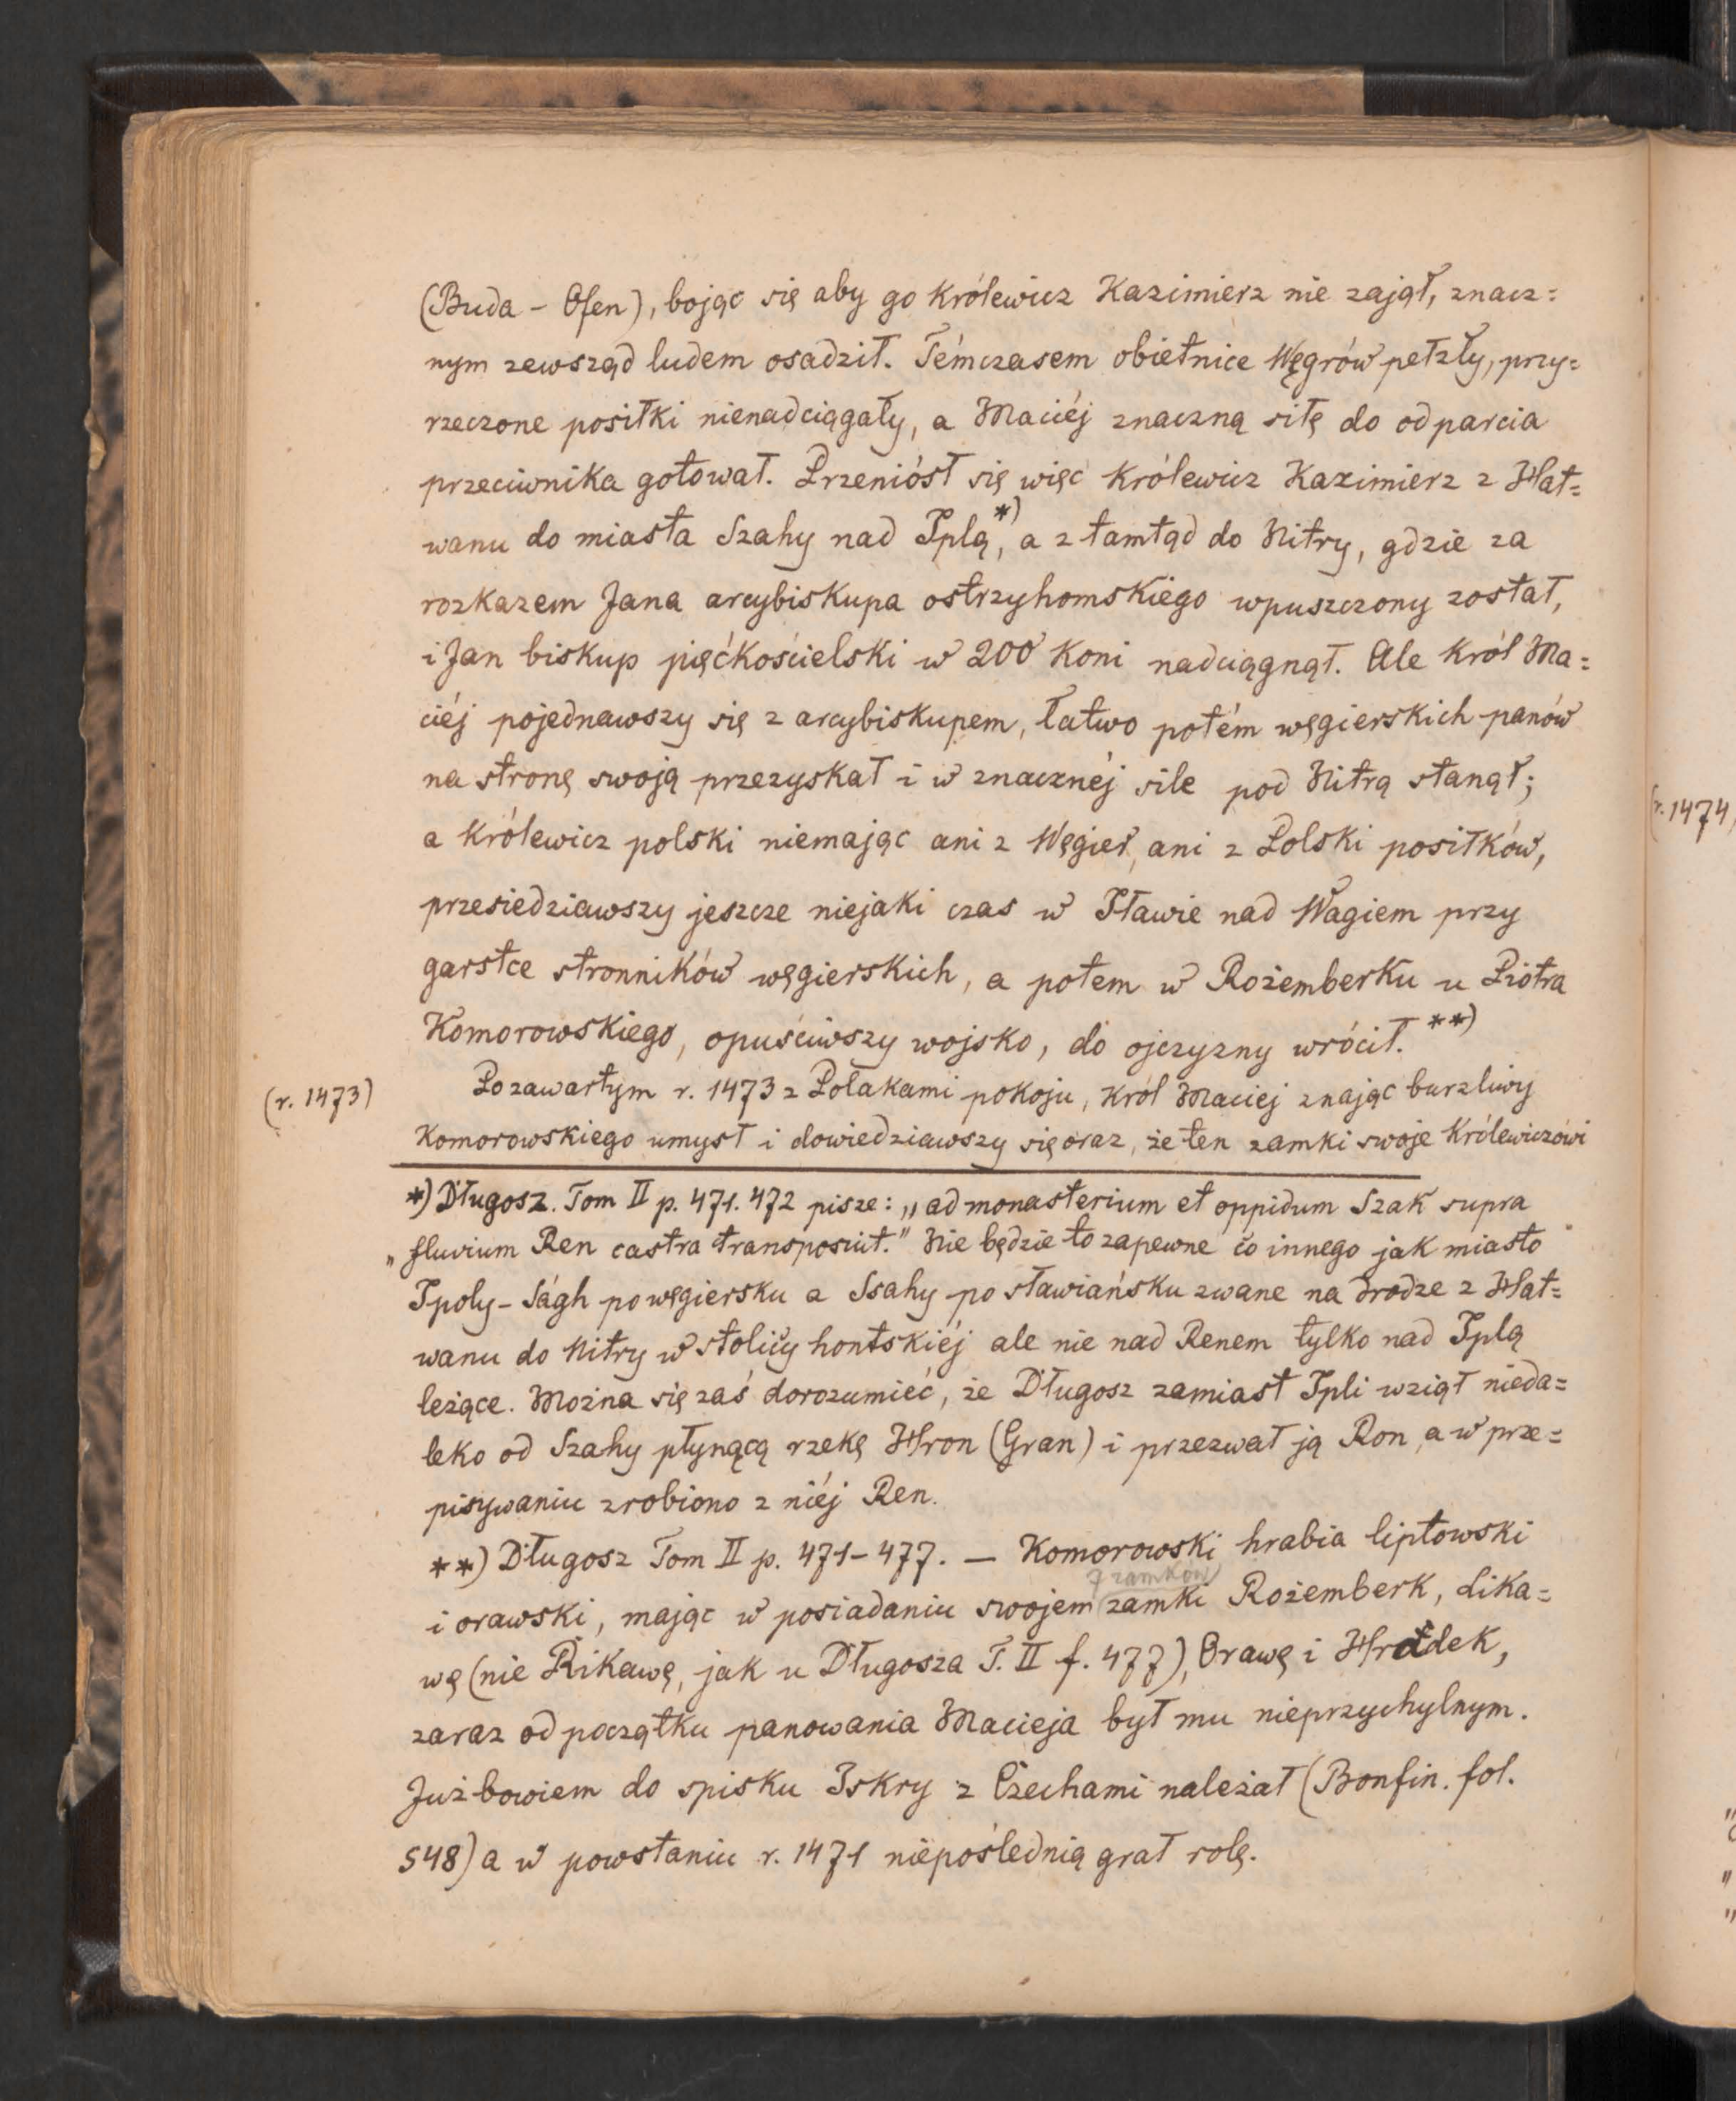 (Buda - Ofen), bojąc się aby go Królewicz Kazimierz nie zajął, znacz=
nym zewsząd ludem osadził. Témczasem obietnice Węgrów pełzły, przy=
rzeczone posiłki nienadciągały, a Maciéj znaczną siłę do odparcia
przeciwnika gotował. Przeniósł się więc Królewicz Kazimierz z Hat=
wanu do miasta Szahy nad Iplą,*) a ztamtąd do Nitry, gdzie za
rozkazem Jana arcybiskupa ostrzyhomskiego wpuszczony został,
i Jan biskup pięćkościelski w 200 koni nadciągnął. Ale Król Ma=
ciéj pojednawszy się z arcybiskupem, łatwo potém węgierskich panów
na stronę swoją przezyskał i w znacznéj sile pod Nitrą stanął;
a Królewicz polski niemając ani z Węgier, ani z Polski posiłków,
przesiedziawszy jeszcze niejaki czas w Iławie nad Wagiem przy
garstce stronników węgierskich, a potem w Rożemberku u Piotra
Komorowskiego, opuściwszy wojsko, do ojczyzny wrócił.**)
(r. 1473)
Po zawartym r. 1473 z Polakami pokoju, Król Maciej znając burzliwy
Komorowskiego umysł i dowiedziawszy się oraz, że ten zamki swoje Królewiczowi
*) Długosz. Tom II p. 471. 472 pisze: „ad monasterium et oppidum Szak supra
„fluvium Ren castra transposuit." Nie będzie to zapewne co innego jak miasto
Ipoly-Ságh po węgiersku a Ssahy po sławiańsku zwane na drodze z Hat=
wanu do Nitry w stolicy hontskiéj ale nie nad Renem tylko nad Iplą
leżące. Można się zaś dorozumieć, że Długosz zamiast Ipli wziął nieda=
leko od Szahy płynącą rzekę Hron (Gran) i przezwał ją Ron, a w prze=
pisywaniu zrobiono z niéj Ren.
**) Długosz Tom II p. 471-477. — Komorowski hrabia liptowski
zamków
i orawski, mając w posiadaniu swojem zamki Rożemberk, Lika=
wę (nie Rikawę, jak u Długosza T. II f. 477), Orawę i Hradek,
zaraz od początku panowania Macieja był mu nieprzychylnym.
Już bowiem do spisku Iskry z Czechami należał (Bonfin. fol.
548) a w powstaniu r. 1471 niepoślednią grał rolę.
(r. 1474